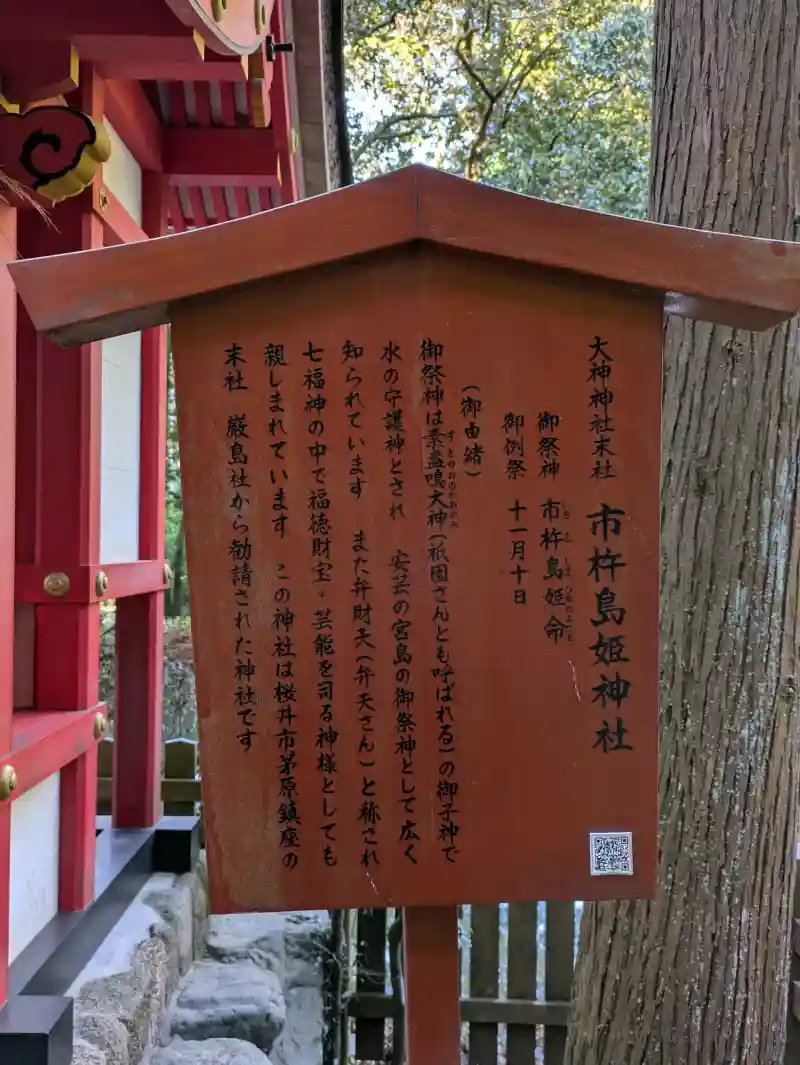 大神神社末社 市杵島姫神社
御祭神 市杵島姫命
御例祭 十一月十日
(御由緒)
御祭神は素盞鳴大神(祇園さんとも呼ばれる)の御子神で
水の守護神とされ 安芸の宮島の御祭神として広く
知られています また弁財天(弁天さん)と称され
七福神の中で福徳財宝・芸能を司る神様としても
親しまれています この神社は桜井市茅原鎮座の
末社 厳島社から勧請された神社です